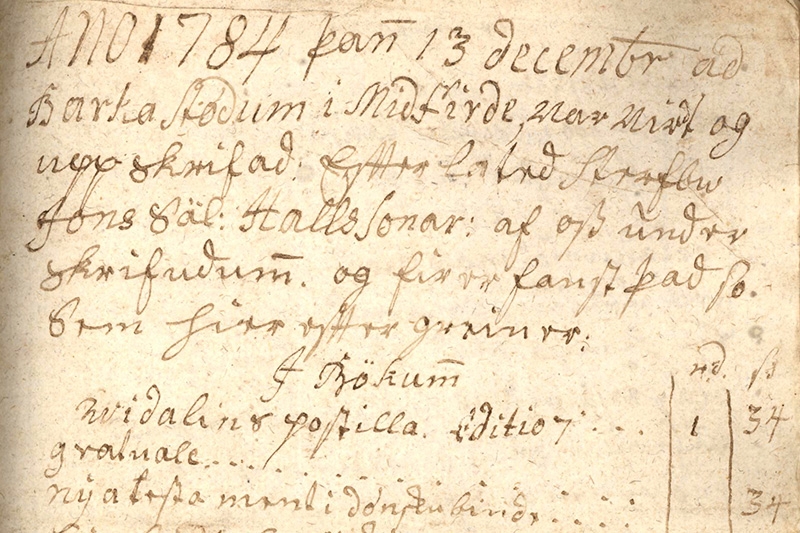 ANO 1784 þan̄ 13 decembr ad
Barkastødum i Midfirde, var virt og
uppskrifad. Effter lated Sterfbu
Jóns Säl: Hallssonar: af oss under
skrifudum̄. og firer fanst þad so.
Sem hier effter greiner:
J Bökum̄ rd. ß
Widalins postilla. Editio 7 . . . 1 34
gratuale . . . .
nýa testament i dønsku bindi . . . . 34